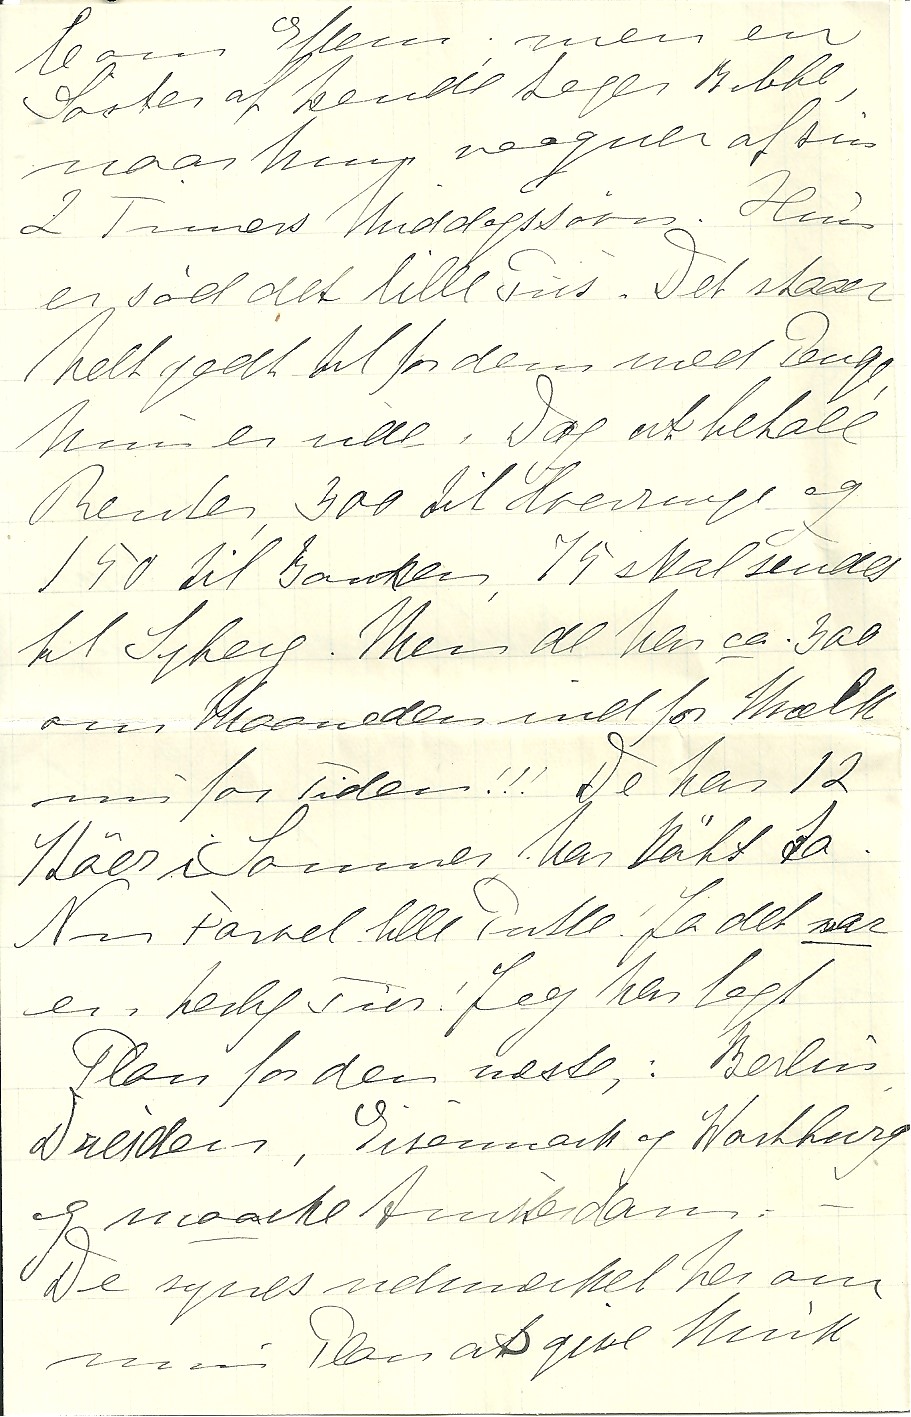 om Eftm. men en
Søster af hende tager Bibbe,
naar hun vaagner af sin
2 Timers Middagssøvn. Hun
er sød det lille Fus. Det staaer
helt godt til for dem med Penge,
hun er ude. Dog at betale
Renter, 300 til Hverringe og
150 til Banken, 75 skal sendes
til Syberg. Men de har ca. 300
om Maaneden ind for Mælk
nu for Tiden!!! De har 12
Köer i Sommer har köbt to.
Nu Farvel lille Putte! Ja det var
en herlig Tur! Jeg har lagt
Plan for den næste,: Berlin,
Dresden, og Wartburg
og maaske Amsterdam. –
De synes udmærket her om
min Plan at give